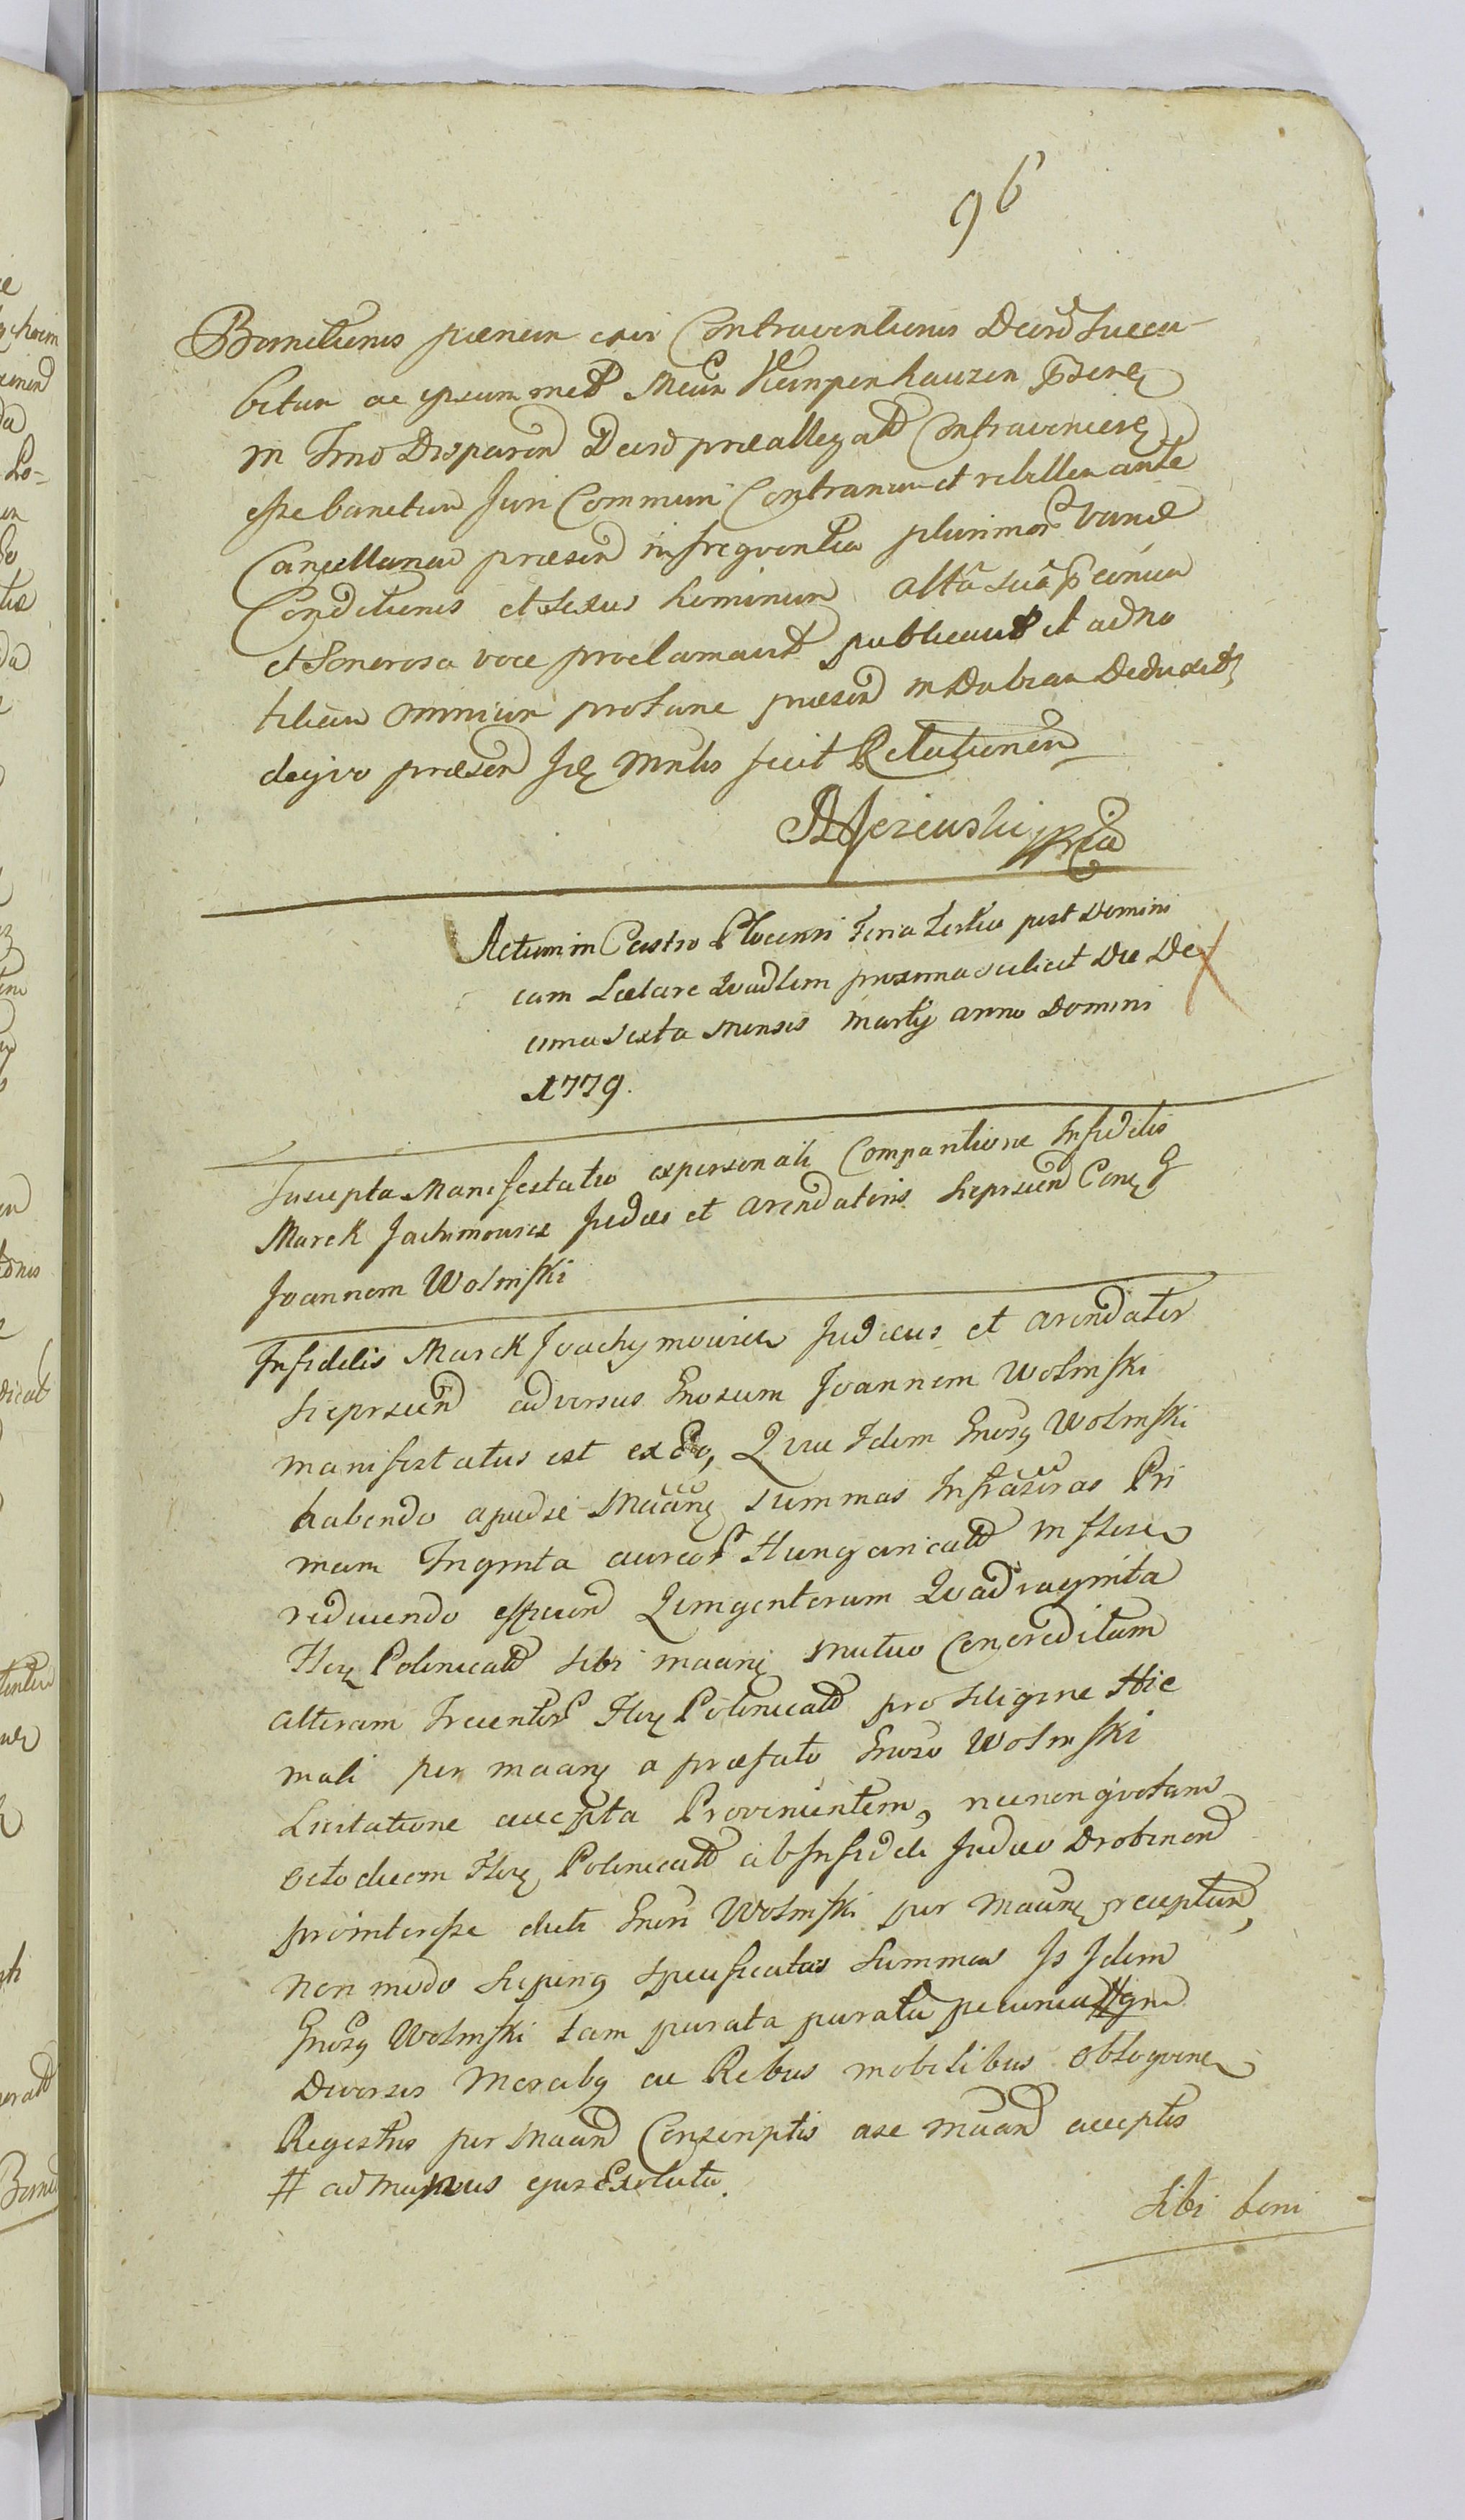 96
Bannitionis paenam ceu Contraventionis Decrd Succu-
betur ac ipsummet Mcum Kempenhauzen Psens
in Tmo Disparen Decrd praeallegatd Contraveniens
esse banitum Juri Communi Contrarium et rebellem ante
Cancellariam praesen in freqventia plurimor Variae
Conditionis et Sexus hominum altâ suâ pcônica
et Sonorosa voce proclamavit publicavit et ad no
titiam omnium protune praesen indubiam Deduxit
deqvo praesen Jdq Mnlis fecit Relationem
Jezewski
Actum in Castro Plocensi feria tertia post Domini
cam Laetare Qvadlem proxima scilicet Die De
cima sexta Mensis Martij anno Domini
1779.
Suscepta Manifestatio ex personali Comparitione Infidelis
Marek Jachimowicz Judaei et arendatoris Sieprscien Con G
Joannem Wolinski
Infidelis Marek Joachymowicz Judaeus et arendator
Sieprscien adversus Gnosum Joannem Wolinski
manifestatus est ex eo, Qvia Idem Gnosq Wolinski
habendo apud se Maanq summas Infrascras Pri
mam Triginta aureor Hungaricald in flore
reducendo efficien Qvingentorum Qvadraginta
Flor Polonicald sibi maang mutuo Concreditam
alteram Trecentor Flor Polonicald pro siligine Hie
mali per maang a praefato Gnoso Wolinski
Licitatione accepta Provenientem, necnon qvotam
octodecem Flor Polonicald ab Infideli Judaeo Drobinend
pro interesse dicti Gnosi Wolinski per Maang receptam
non modo Siepinq specificatas summas Is Idem
Gnosq Wolinski tam parata parata pecunia # qm
Diversis Mercibq ac Rebus mobilibus obloqvene
Regestris per Maand Conscriptis a se maand acceptis
# ad manus ejus Exoluta.
Sibi boni